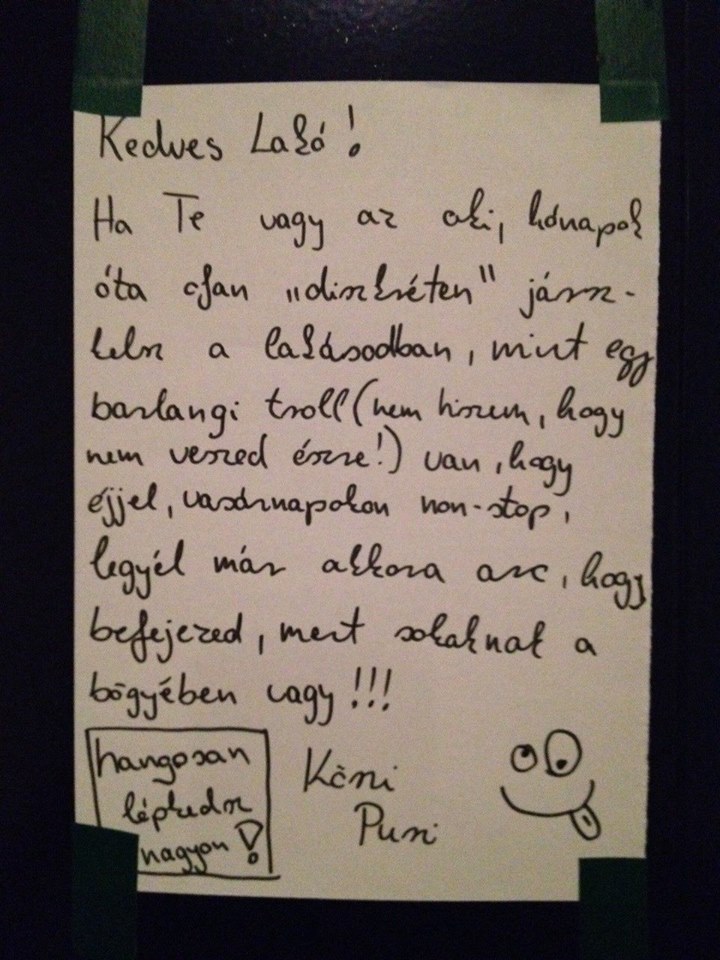 Kedves Lakó!
Ha Te vagy az aki, hónapok
óta olyan „diszkréten" jársz-
kelsz a lakásodban, mint egy
barlangi troll (nem hiszem, hogy
nem veszed észre!) van, hogy
éjjel, vasárnapokon non-stop,
legyél már akkora arc, hogy
befejezed, mert sokaknak a
bögyében vagy!!!
hangosan
lépkedsz
nagyon!
Köszi
Puszi